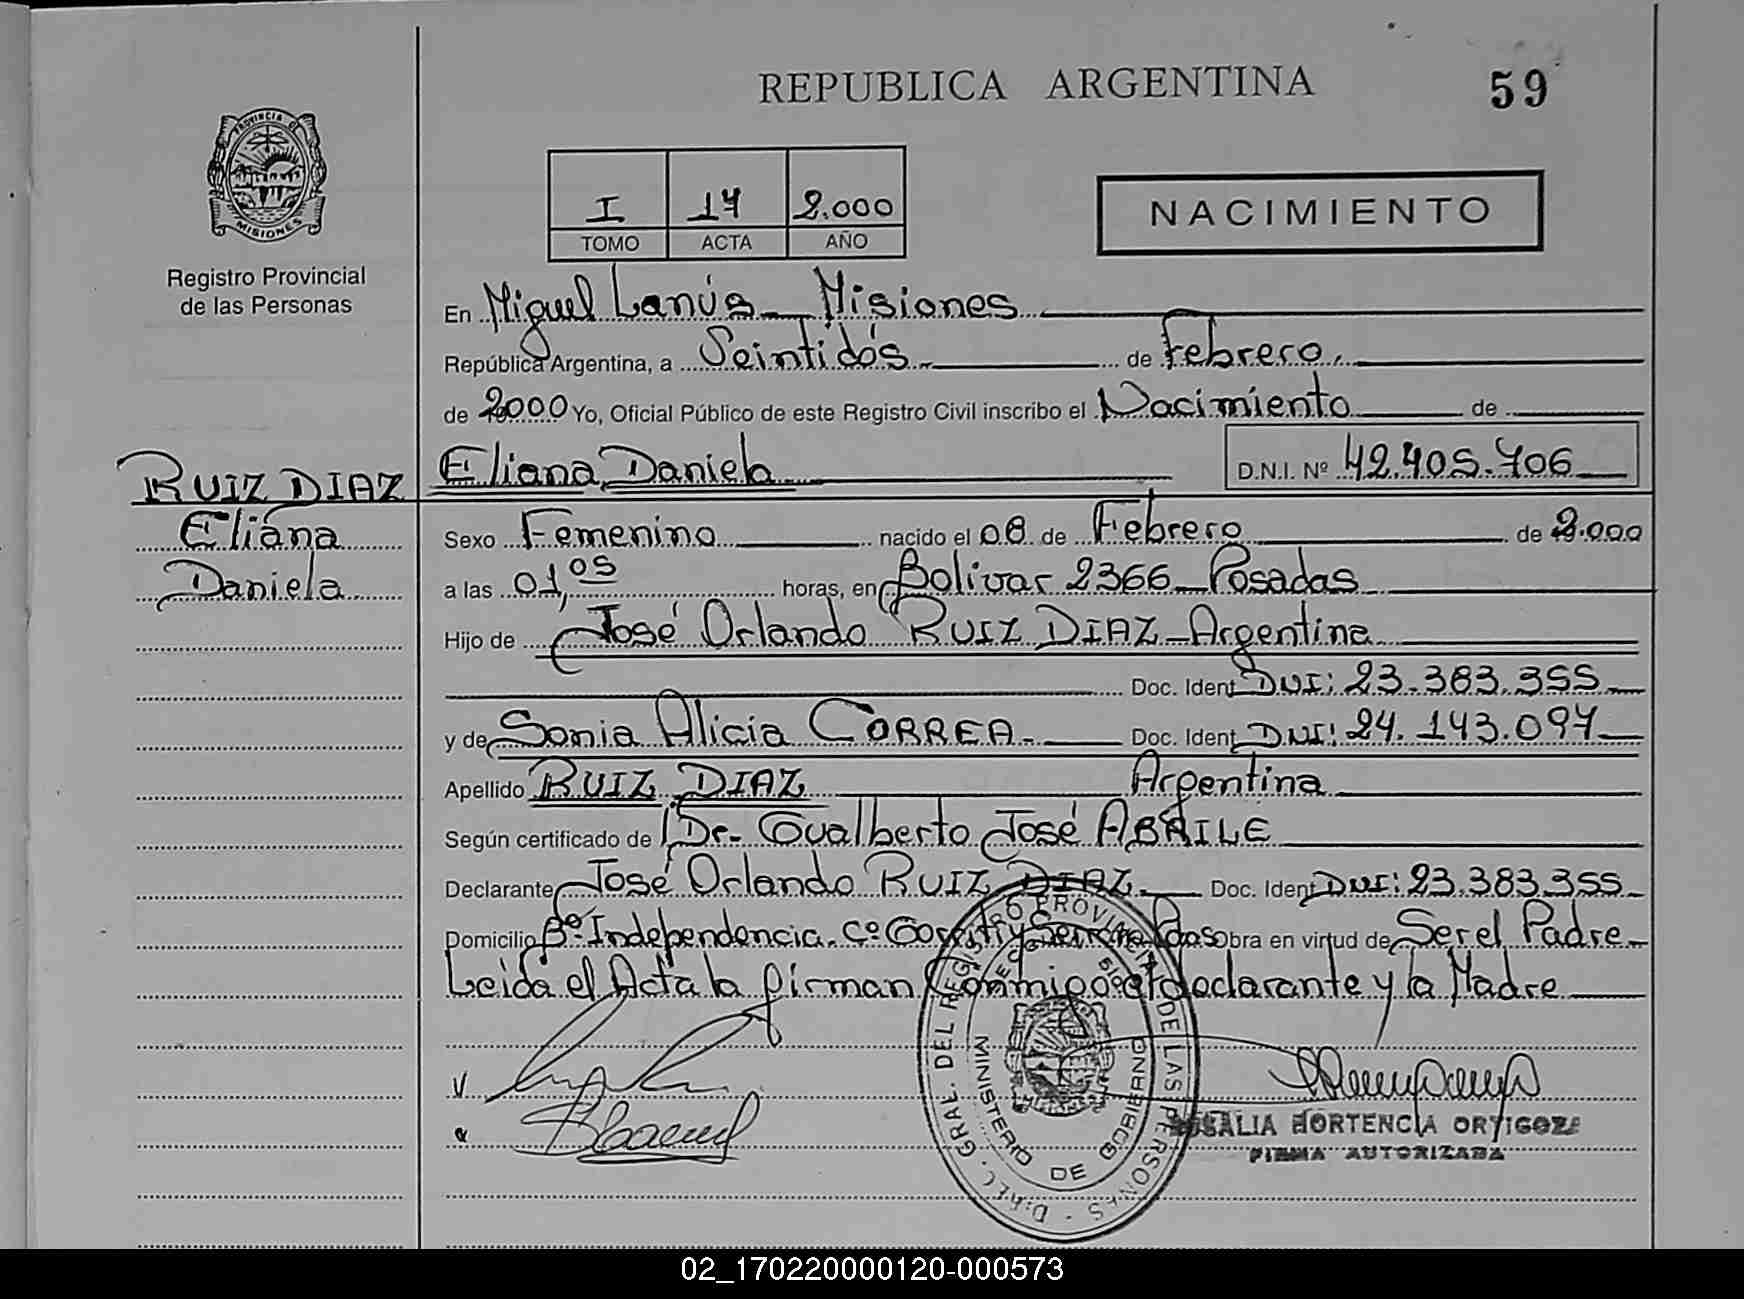 REPUBLICA ARGENTINA
59
PROVINCIA DE
MISIONES
Registro Provincial
de las Personas
I 17 2.000
TOMO ACTA AÑO
NACIMIENTO
En Miguel Lanús - Misiones
República Argentina, a Veintidós de Febrero
de 2000 Yo, Oficial Público de este Registro Civil inscribo el Nacimiento de
RUIZ DIAZ Eliana Daniela D.N.I. Nº 42.405.706
Eliana
Daniela
Sexo Femenino nacido el 08 de Febrero de 2.000
a las 01,05 horas, en Bolivar 2366 - Posadas
Hijo de José Orlando RUIZ DIAZ - Argentina
Doc. Ident. DNI: 23.383.355
y de Sonia Alicia CORREA Doc. Ident. DNI: 24.143.097
Apellido RUIZ DIAZ Argentina
Según certificado de Dr. Gualberto José ABRILE
Declarante José Orlando RUIZ DIAZ Doc. Ident. DNI: 23.383.355
Domicilio Bº Independencia. Cº y Pdas Obra en virtud de Ser el Padre
Leida el Acta la firman Conmigo el declarante y la Madre
DIREC. GRAL. DEL REGISTRO PROVINCIAL DE LAS PERSONAS
MINISTERIO DE GOBIERNO
HORTENCIA ORTIGOZA
FIRMA AUTORIZADA
02_170220000120-000573